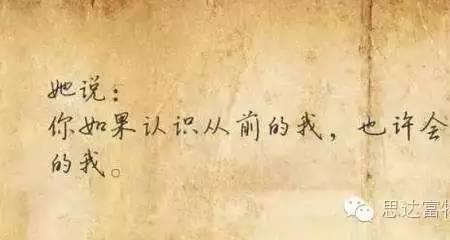 她说：
你如果认识从前的我，也许会
的我。
思达富